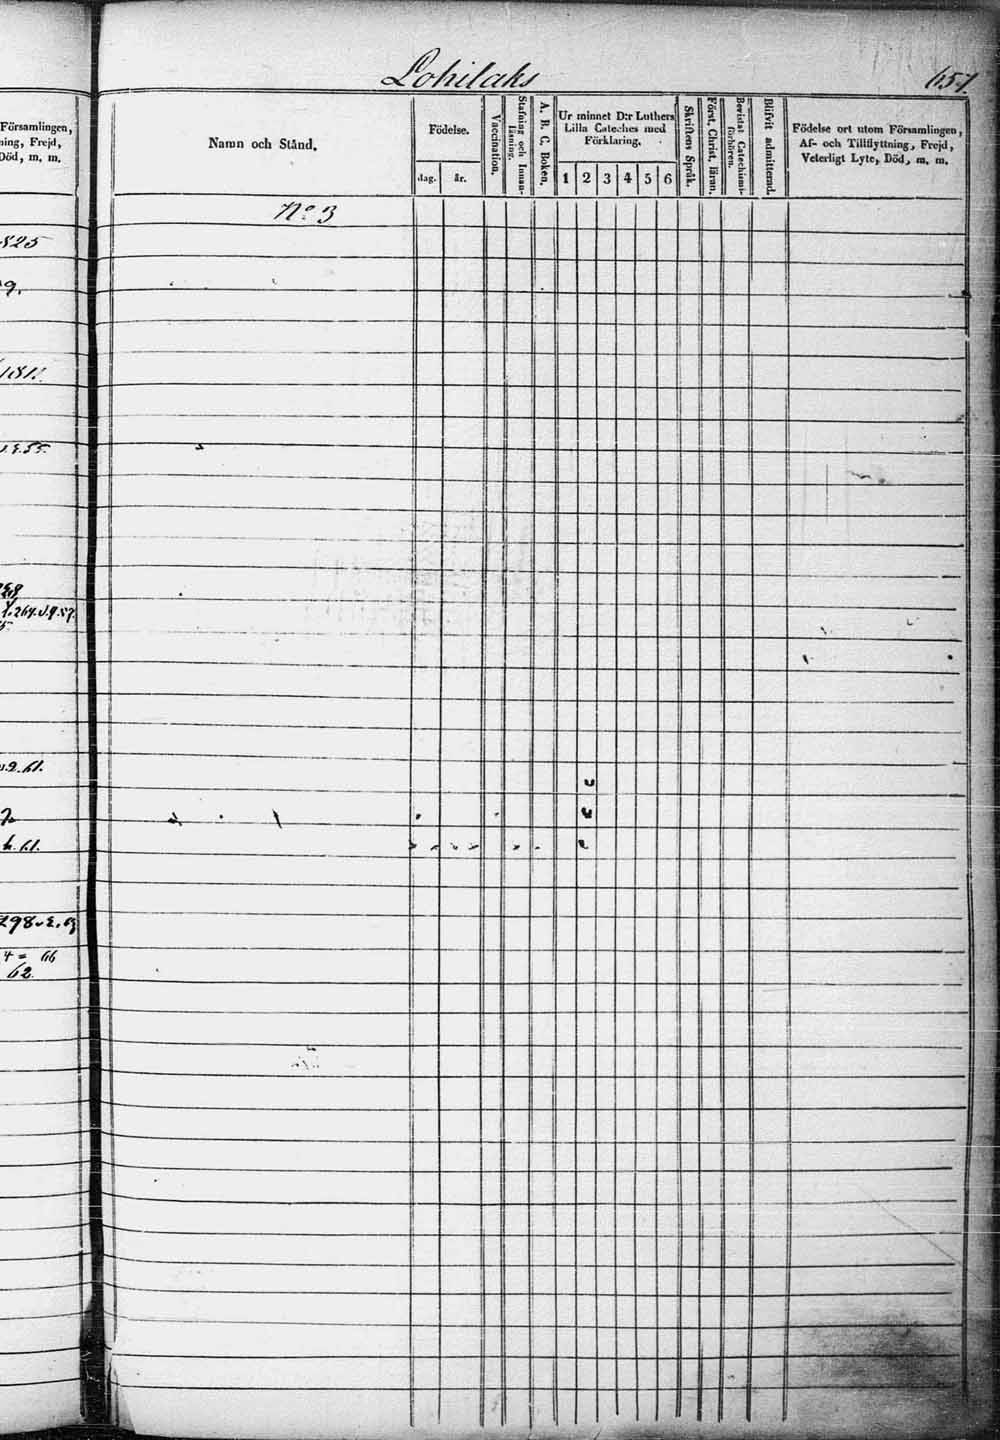 Lohilaks
657.
Församlingen,
ning, Frejd,
Död, m. m.
Namn och Stånd.
Födelse.
dag.
år.
Vaccination.
Stafning och Innan-
läsning.
A. B. C. Boken.
Ur minnet D:r Luthers
Lilla Cateches med
Förklaring.
1 2 3 4 5 6
Skriftens Språk.
Först. Christ. läran.
Bevistat Catechismi-
förhören.
Blifvit admitterad.
Födelse ort utom Församlingen,
Af- och Tillflyttning, Frejd,
Veterligt Lyte, Död, m. m.
No 3
825
9.
181
55.
f. 264. d. 9. 57.
2. 61.
61.
298 v. 2. 63
4 = 66
62.